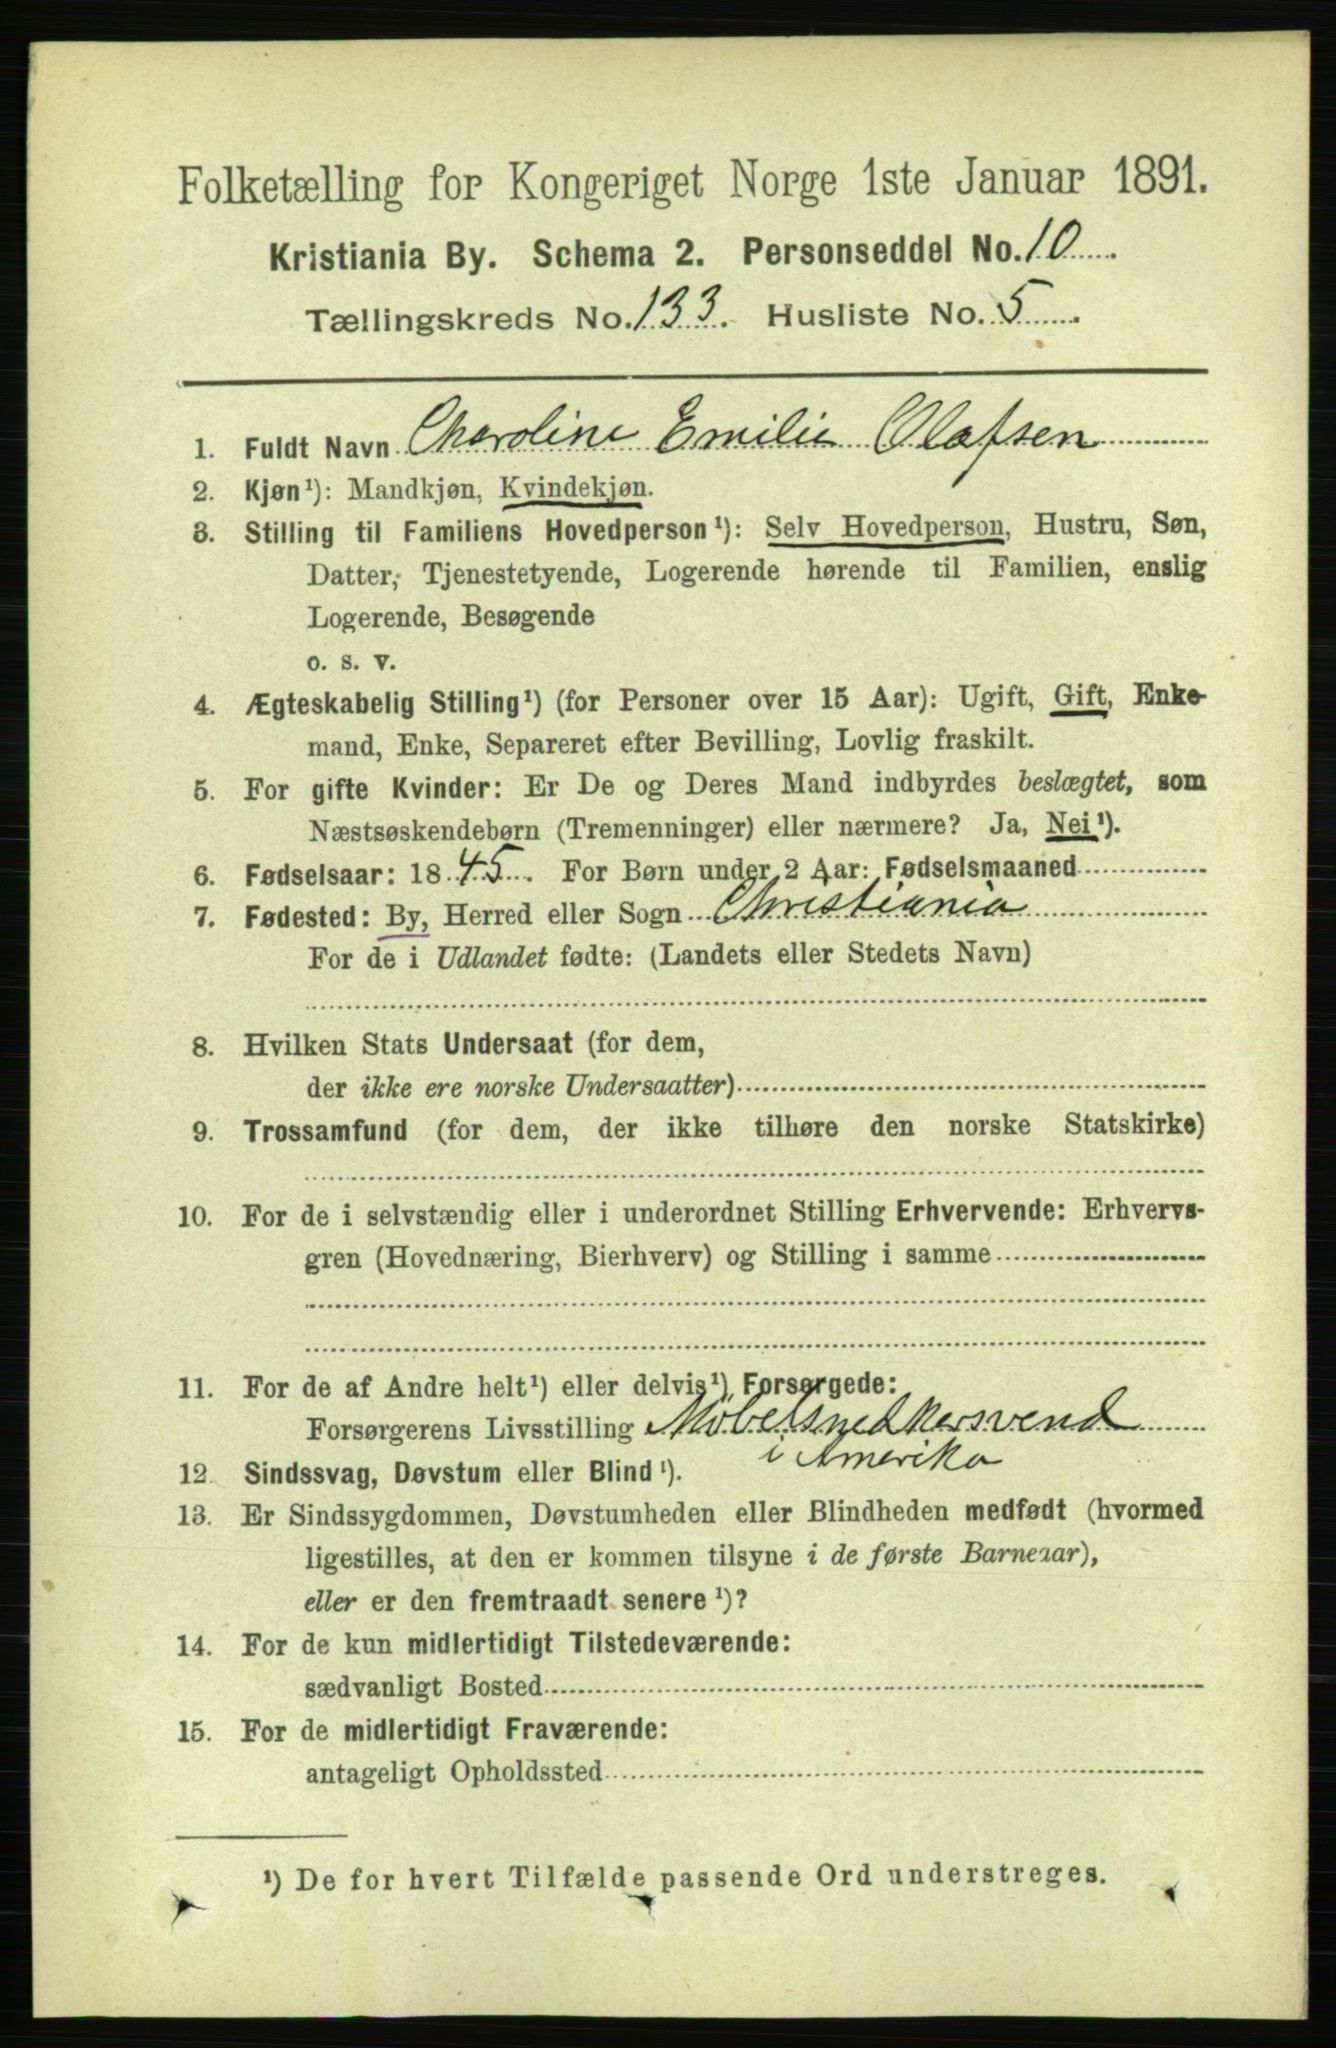 Folketælling for Kongeriget Norge 1ste Januar 1891.
Kristiania By. Schema 2. Personseddel No. 10
Tællingskreds No. 133. Husliste No. 5
1. Fuldt Navn Charoline Emilie Olafsen
2. Kjøn¹): Mandkjøn, Kvindekjøn.
3. Stilling til Familiens Hovedperson¹): Selv Hovedperson, Hustru, Søn,
Datter, Tjenestetyende, Logerende hørende til Familien, enslig
Logerende, Besøgende
o. s. v.
4. Ægteskabelig Stilling¹) (for Personer over 15 Aar): Ugift, Gift, Enke-
mand, Enke, Separeret efter Bevilling, Lovlig fraskilt.
5. For gifte Kvinder: Er De og Deres Mand indbyrdes beslægtet, som
Næstsøskendebørn (Tremenninger) eller nærmere? Ja, Nei¹).
6. Fødselsaar: 1845. For Børn under 2 Aar: Fødselsmaaned
7. Fødested: By, Herred eller Sogn Christiania
For de i Udlandet fødte: (Landets eller Stedets Navn)
8. Hvilken Stats Undersaat (for dem,
der ikke ere norske Undersaatter)
9. Trossamfund (for dem, der ikke tilhøre den norske Statskirke)
10. For de i selvstændig eller i underordnet Stilling Erhvervende: Erhvervs-
gren (Hovednæring, Bierhverv) og Stilling i samme
11. For de af Andre helt¹) eller delvis¹) Forsørgede:
Forsørgerens Livsstilling Møbelsnedkersvend
i Amerika
12. Sindssvag, Døvstum eller Blind¹).
13. Er Sindssygdommen, Døvstumheden eller Blindheden medfødt (hvormed
ligestilles, at den er kommen tilsyne i de første Barneaar),
eller er den fremtraadt senere¹)?
14. For de kun midlertidigt Tilstedeværende:
sædvanligt Bosted
15. For de midlertidigt Fraværende:
antageligt Opholdssted
¹) De for hvert Tilfælde passende Ord understreges.